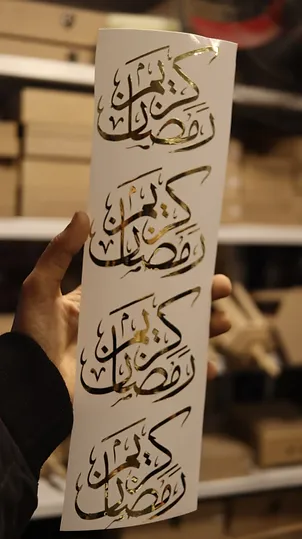 رمضان كريم
رمضان كريم
رمضان كريم
رمضان كريم